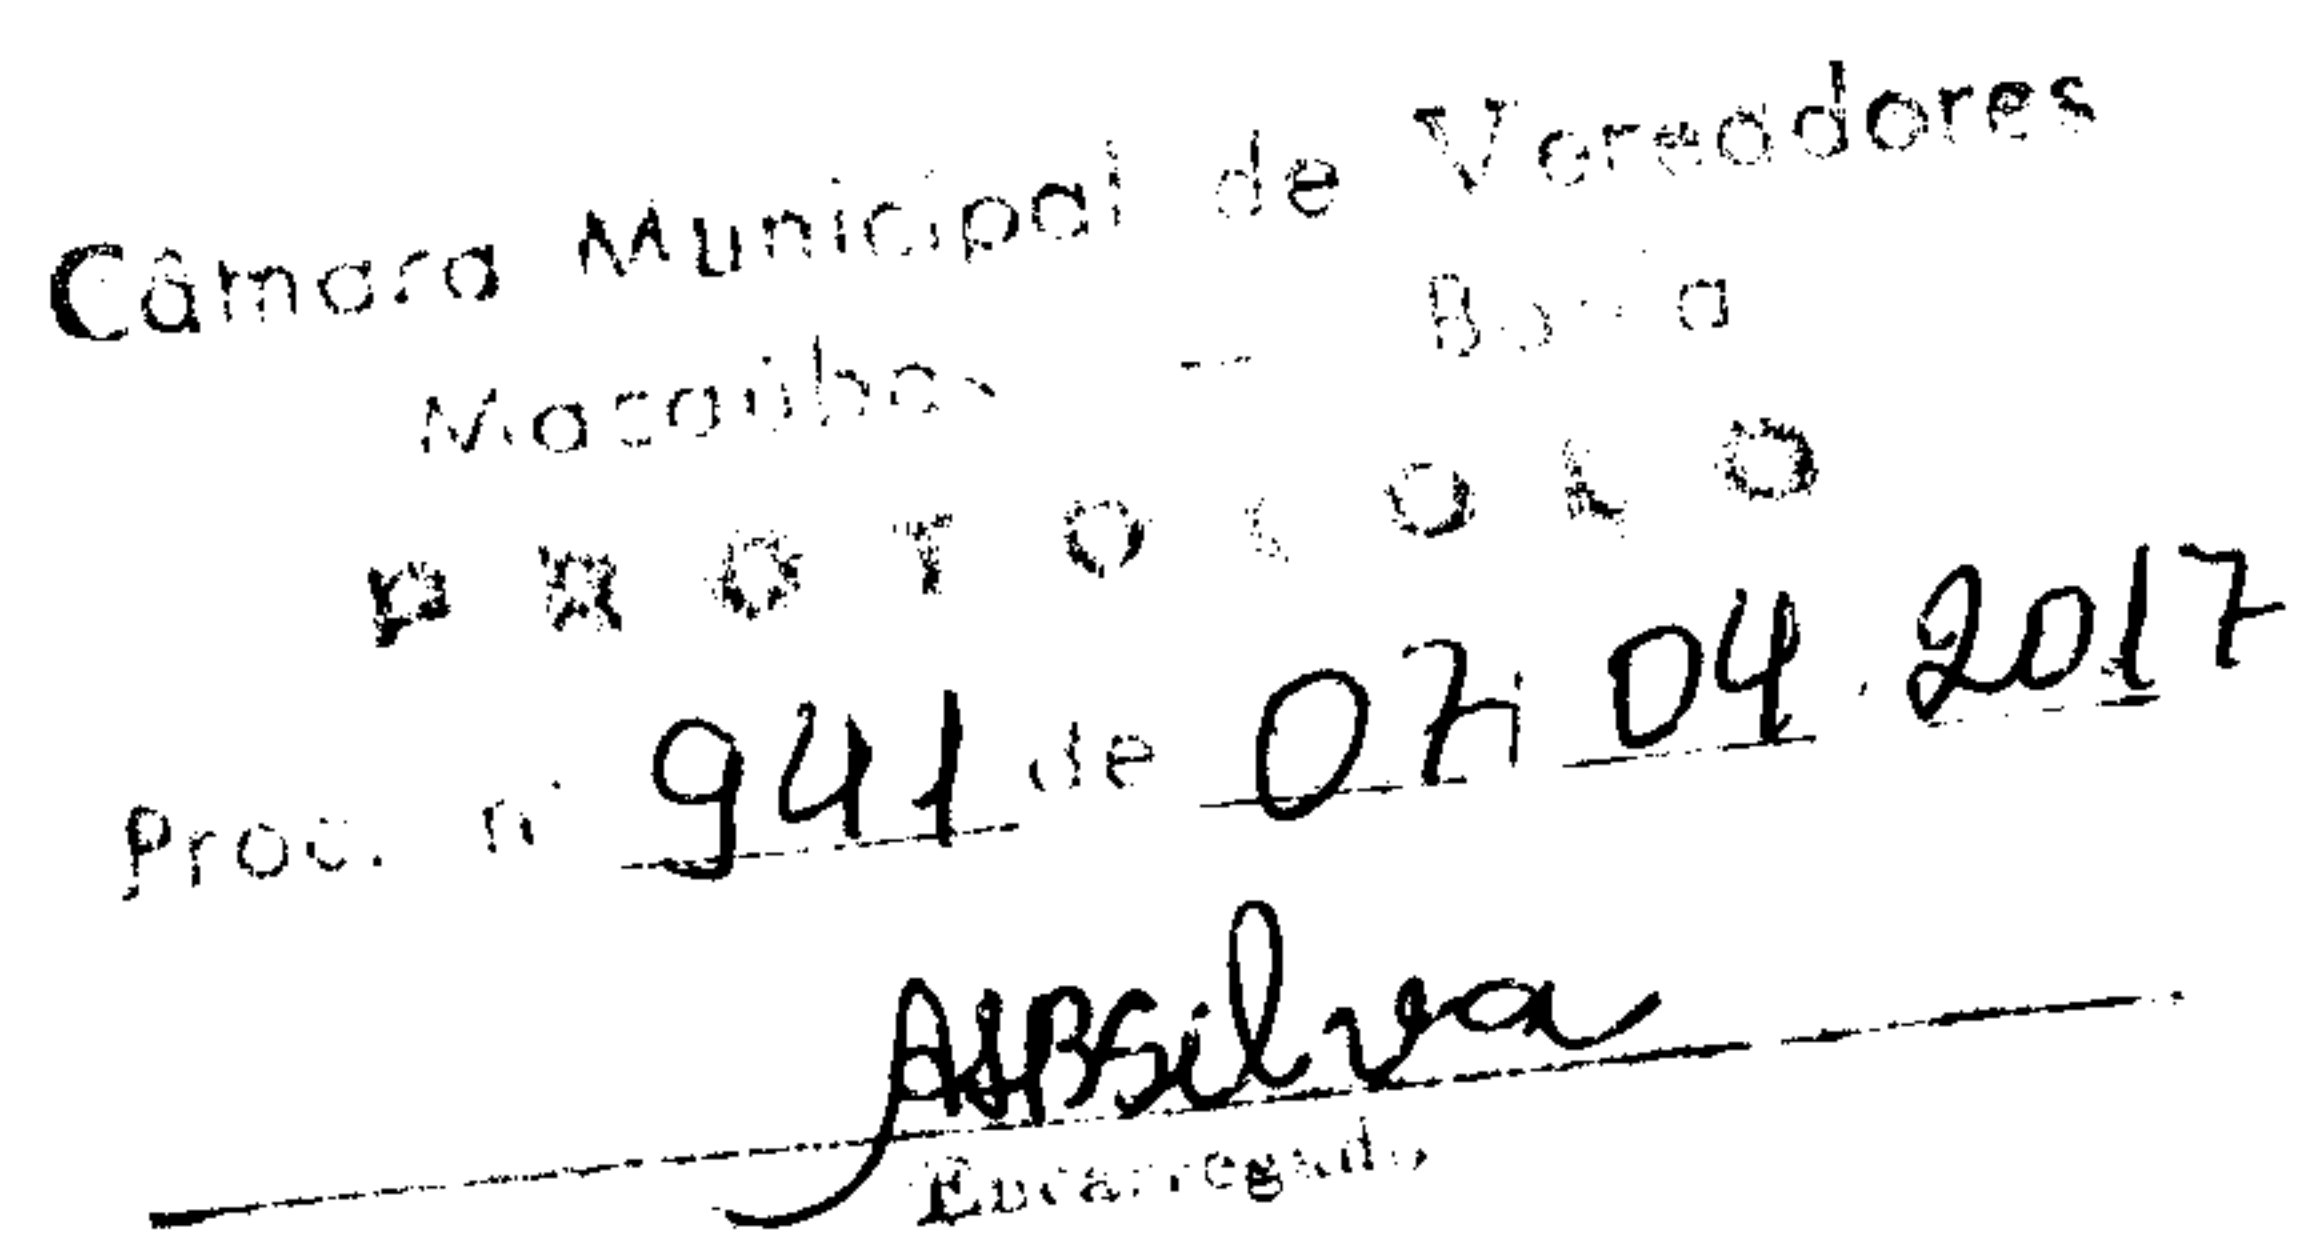 Câmara Municipal de Vereadores
Macaúbas — Bahia
PROTOCOLO
Proc. nº 941 de 07/04/2017
Encarregado